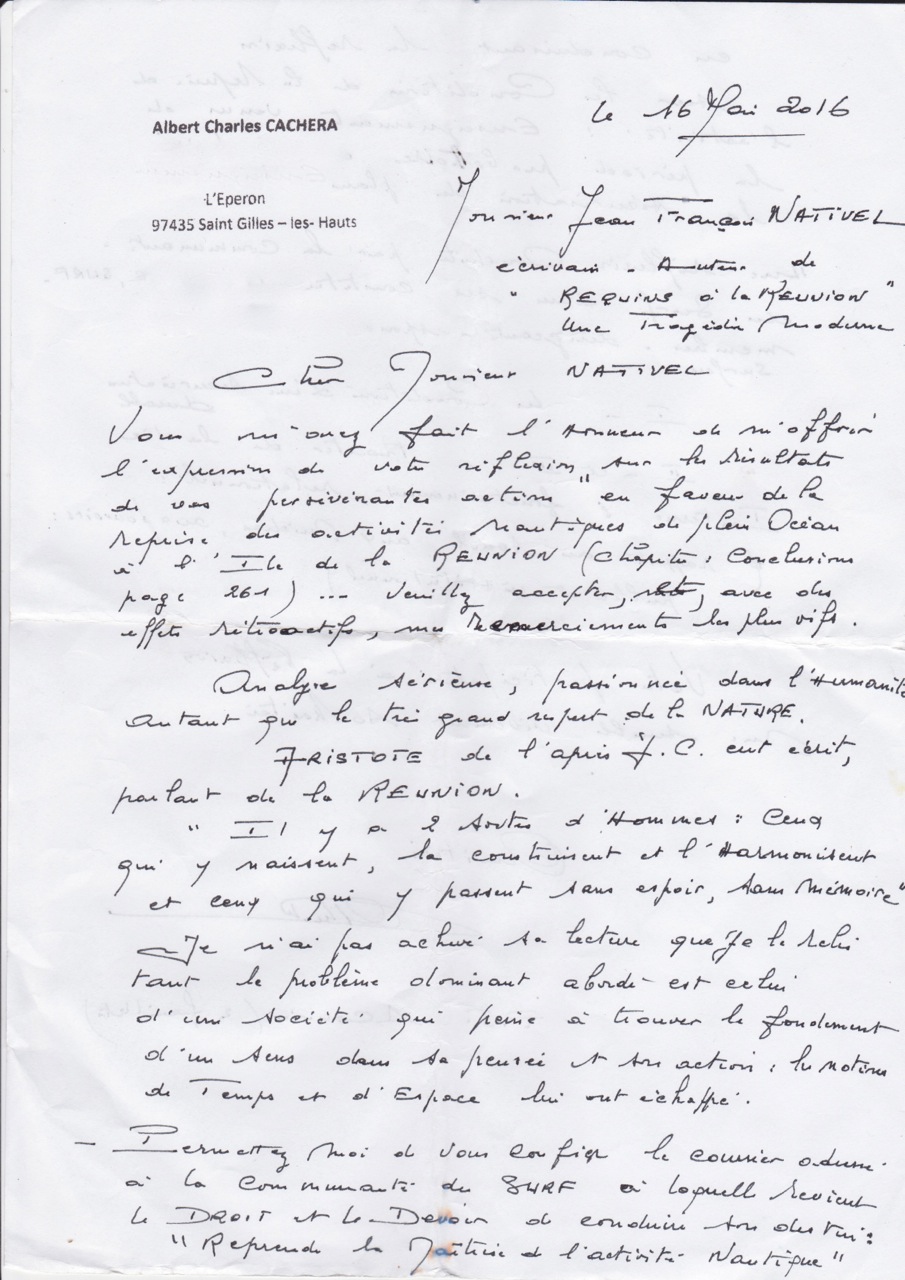 le 16 Mai 2016
Albert Charles CACHERA
L'Eperon
97435 Saint Gilles – les- Hauts
Monsieur Jean François NATIVEL
écrivain - Auteur de
" REQUINS à la REUNION "
Une Tragédie Moderne
Cher Monsieur NATIVEL
Vous m'avez fait l'Honneur de m'offrir
l'expression de votre réflexion sur les résultats
de vos persévérantes actions " en faveur de la
reprise des activités nautiques de plein Océan
à l'Ile de la REUNION (Chapitre : Conclusions
page 261) ... Veuillez accepter, avec des
effets rétroactifs, mes Remerciements les plus vifs.
Analyse sérieuse, passionnée dans l'Humanité
autant que le très grand respect de la NATURE.
ARISTOTE de l'après J.C. eut écrit,
parlant de la REUNION.
" Il y a 2 sortes d'Hommes : Ceux
qui y naissent, la construisent et l'Harmonisent
et ceux qui y passent sans espoir, sans mémoire"
Je n'ai pas achevé sa lecture que Je le relis
tant le problème dominant abordé est celui
d'une société qui peine à trouver le fondement
d'un sens dans sa pensée et son action : les notions
de Temps et d'Espace lui ont échappé.
– Permettez moi de vous confier le courrier adressé
à la Communauté du SURF à laquelle revient
le DROIT et le Devoir de conduire son destin :
" Reprendre la Maîtrise de l'activité Nautique "